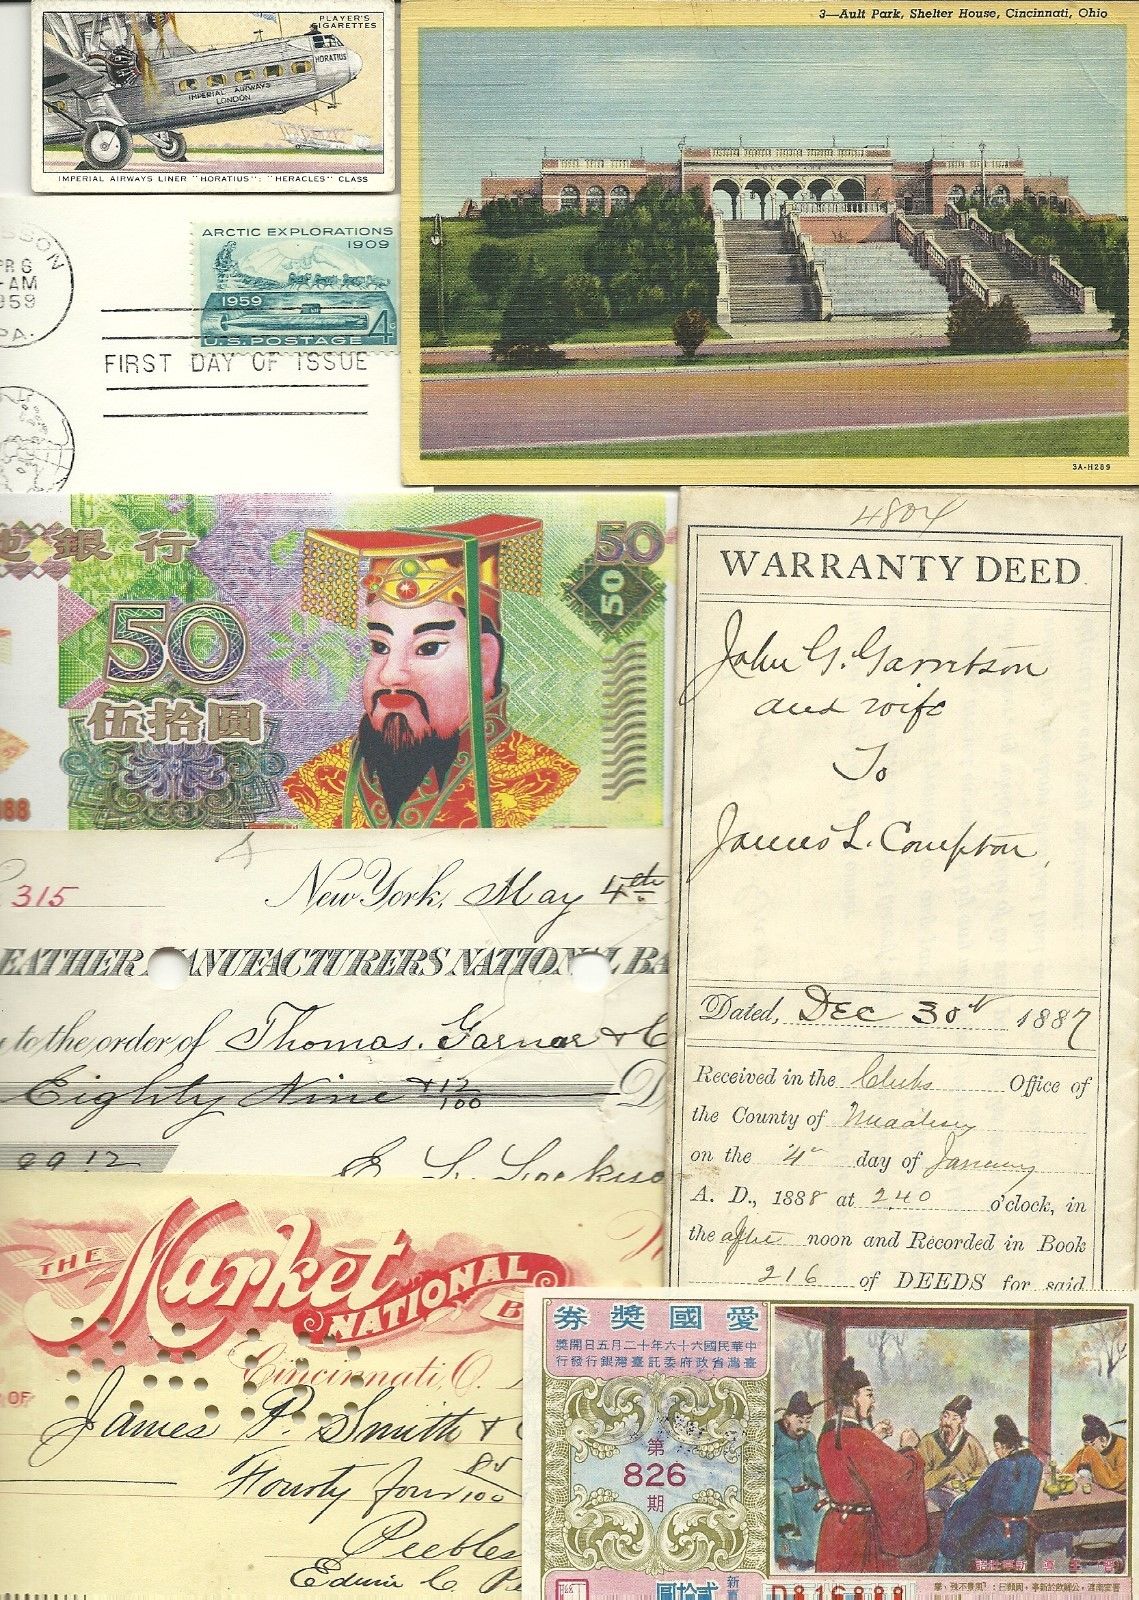 PLAYER'S
CIGARETTES
HORATIUS
IMPERIAL AIRWAYS
LONDON
IMPERIAL AIRWAYS LINER "HORATIUS": "HERACLES" CLASS
3—Ault Park, Shelter House, Cincinnati, Ohio
3A-H289
ARCTIC EXPLORATIONS
1909
1959
4¢
U.S. POSTAGE
SSON
PR 6
-AM
959
PA.
FIRST DAY OF ISSUE
銀行
50
50
50
伍拾圓
88
4804
WARRANTY DEED
John G. Garretson
and wife
To
James L. Compton,
Dated, Dec 30th 1887
Received in the Clerks Office of
the County of
on the 4th day of January
A. D., 1888 at 2 40 o'clock, in
the after noon and Recorded in Book
216 of DEEDS for said
315
New York, May 4th
EATHER MANUFACTURERS NATIONAL BA
to the order of Thomas. Garner & C
Eighty Nine + 12/100 D
89 12
THE Market
NATIONAL B
Cincinnati, O.
OF
James P. Smith + C
Fourty four 85/100
Peebles
Edwin C. Pe
愛國獎券
中華民國六十六年十二月五日開獎
臺灣省政府委託臺灣銀行發行
第
826
期
貳拾圓
D816888